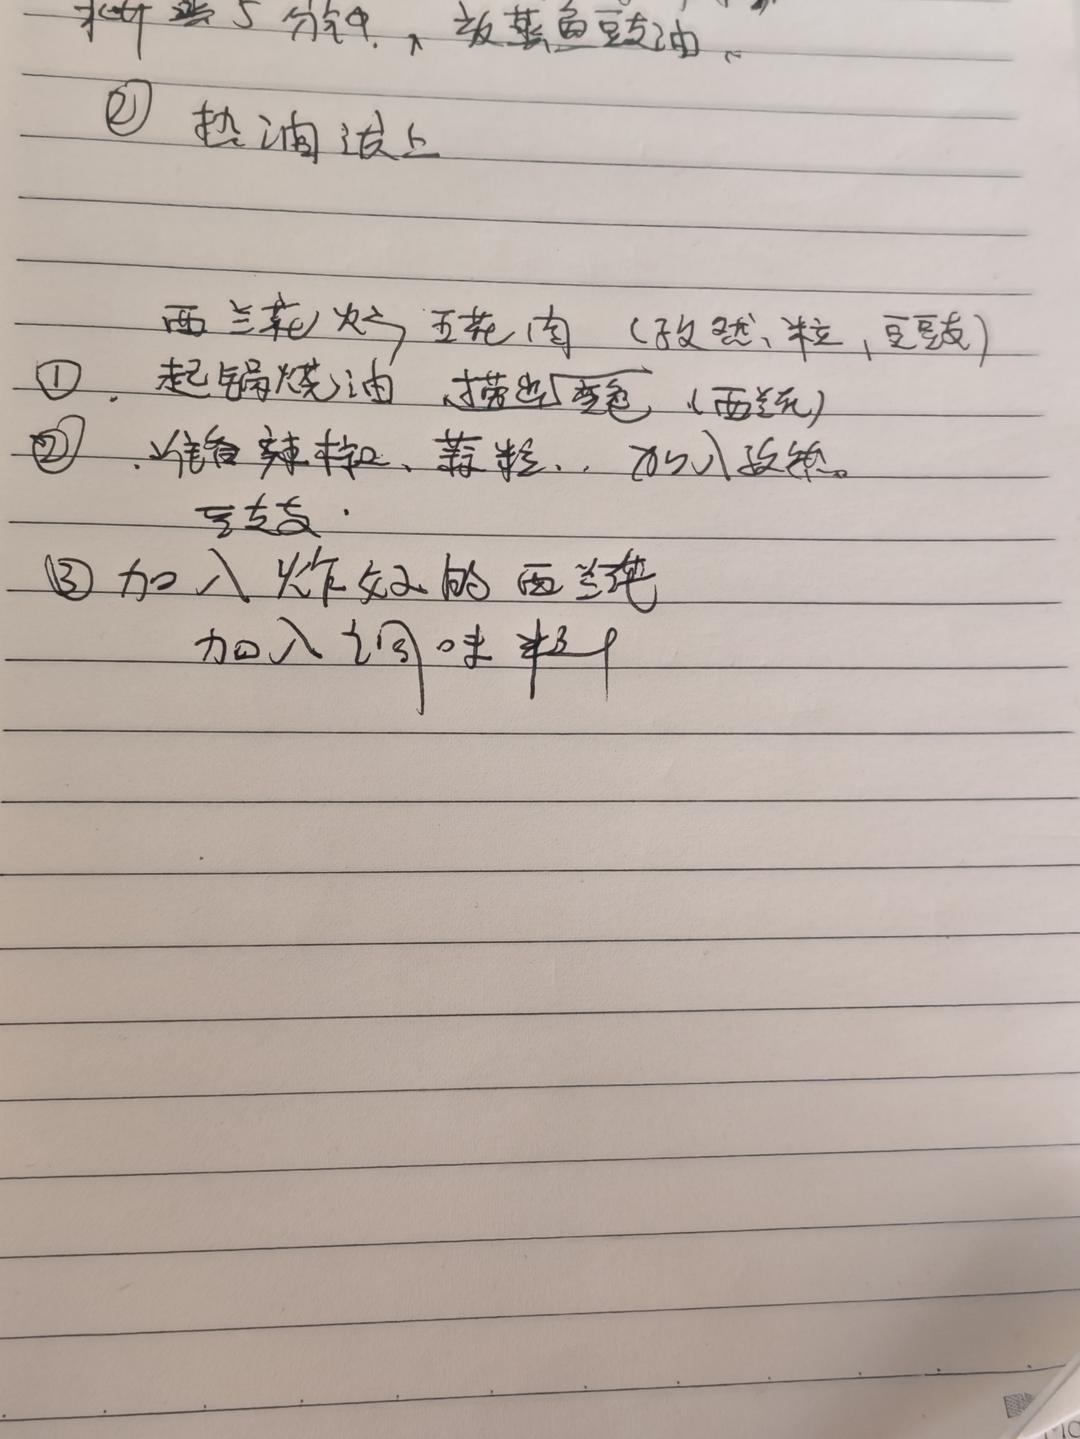 5分钟、放蒸鱼豉油、
② 热油泼上
西兰花炒五花肉（孜然、粒，豆豉）
①. 起锅烧油 变色（西兰花）
② . 辣椒、蒜粒.. 加入孜然。
豆豉.
③ 加入炸好的西兰花
加入调味料